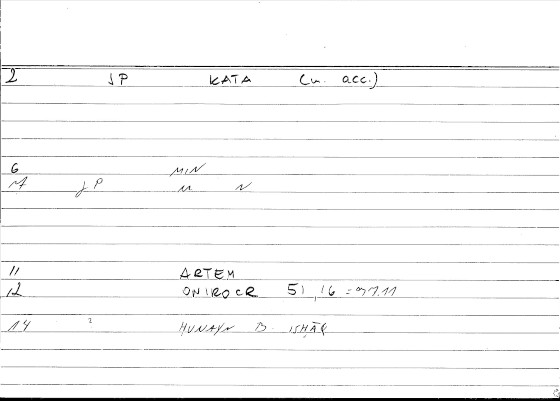 2 JP KATA (u. acc.)
6 MIN
JP N
11 ARTEM
12 ONIROCR 51,16 =
14 HUNAYN B. ISHĀQ